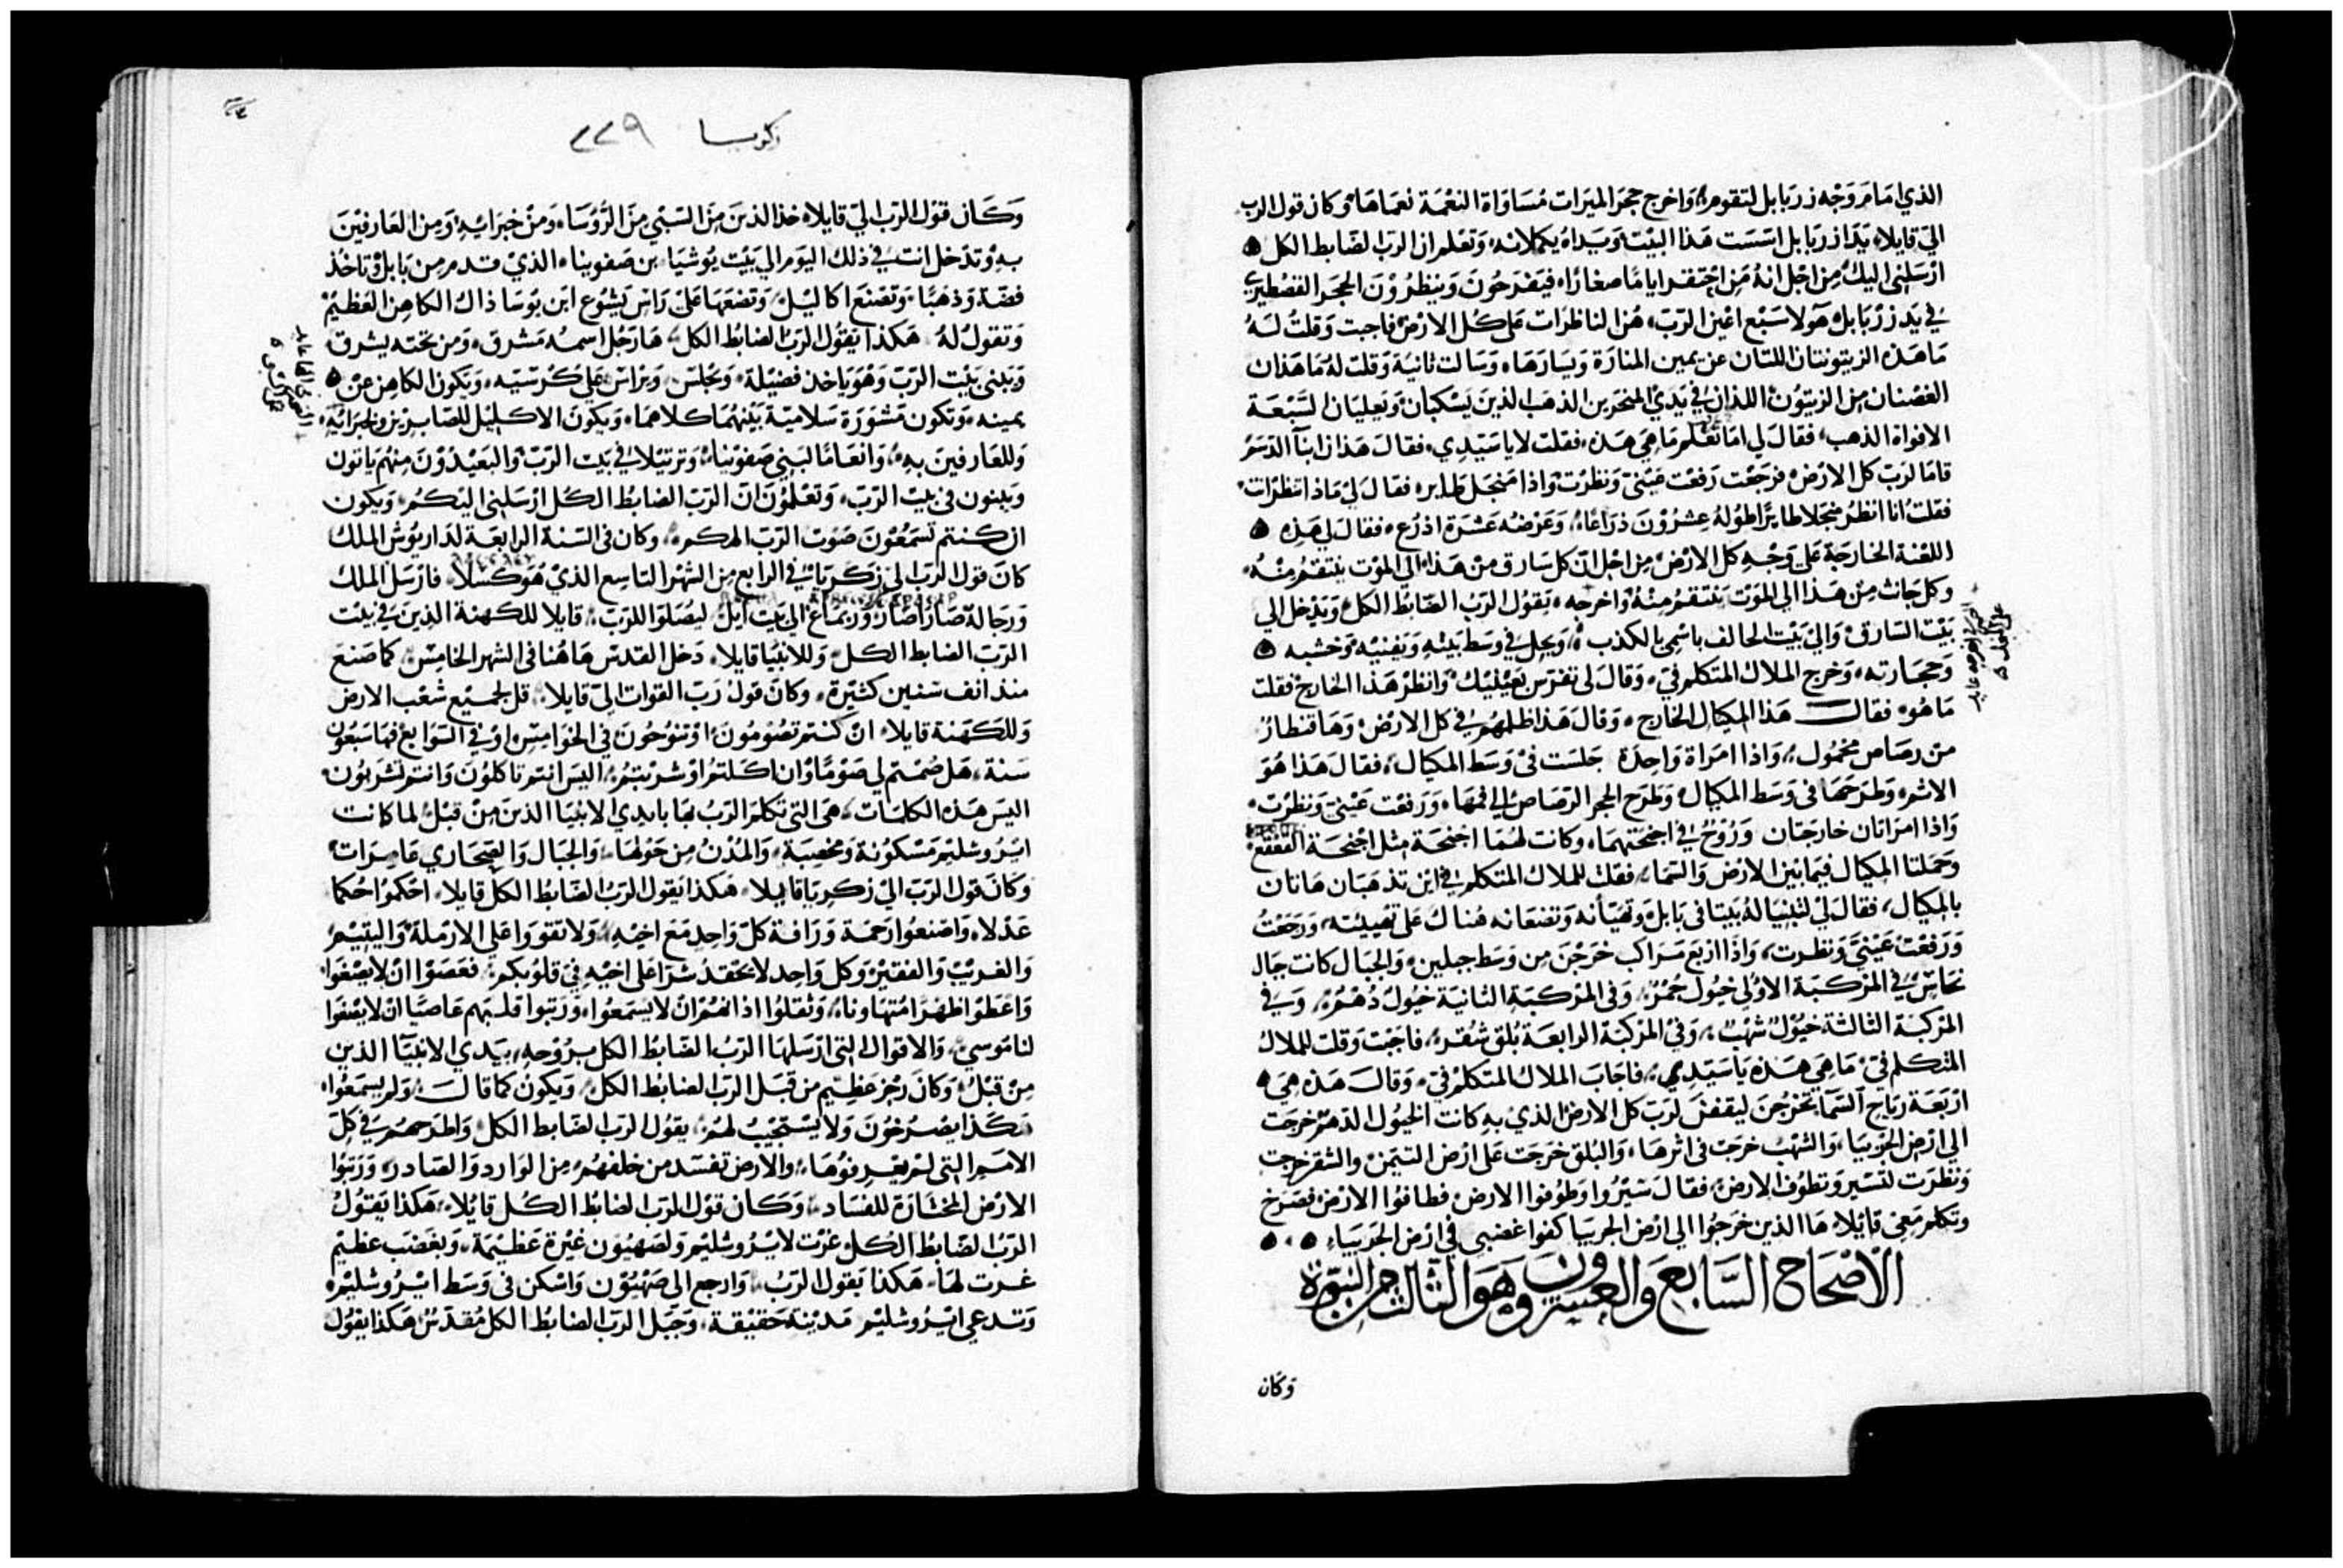 الذي امام وجه زربابل لتقوم، واخرج حجر الميرات مساواة النعمة نعماها، وكان قول الرب
الي قايلا، يدا زربابل اسست هذا البيت ويداه يكملانه، وتعلم ان الرب الضابط الكل
ارسلني اليك، من اجل انه من احتقر اياما صغارا، فيفرحون وينظرون الحجر القصطيري
في يد زربابل هولا سبع اعين الرب، هن الناظرات علي كل الارض فاجبت وقلت له
ما هذه الزيتونتان اللتان عن يمين المنارة ويسارها، وسالت ثانية وقلت له ما هذان
الغصنان من الزيتون اللذان في يدي المنخرين الذهب الذين يسكبان ويعليان السبعة
الافواة الذهب، فقال لي اما تعلم ما هي هذه، فقلت لا يا سيدي، فقال هذان ابنآ الدسم
قاما لرب كل الارض فرجعت رفعت عيني ونظرت واذا منجل طاير، فقال لي ماذا تنظر انت
فقلت انا انظر منجلا طايرا طوله عشرون ذراعا، وعرضه عشرة اذرع، فقال لي هذه
اللعنة الخارجة علي وجه كل الارض من اجل ان كل سارق من هذا الي الموت ينتقم منه
وكل حانث من هذا الي الموت ينتقم منه واخرجه، يقول الرب الضابط الكل وتدخل الي
بيت السارق والي بيت الحالف باسمي بالكذب، ويحل في وسط بيته ويفنيه وخشبه
وحجارته، وخرج الملاك المتكلم في، وقال لي تفرس بعينيك وانظر هذا الخارج فقلت
ما هو، فقال هذا المكيال الخارج، وقال هذا ظلمهم في كل الارض وها قنطار
من رصاص محمول، واذا امراة واحدة جلست في وسط المكيال، فقال هذا هو
الاثم، وطرحها في وسط المكيال وطرح الحجر الرصاص الي فمها، ورفعت عيني ونظرت
واذا امراتان خارجتان وروح في اجنحتهما، وكانت لهما اجنحة مثل اجنحة القفقع
وحملتا المكيال فيما بين الارض والسما، فقلت للملاك المتكلم في اين تذهبان هاتان
بالمكيال، فقال لي لتبنيا له بيتا في بابل وتهيأنه وتضعانه هناك علي تهييئته، ورجعت
ورفعت عيني ونظرت، واذا اربع مراكب خرجن من وسط جبلين، والجبال كانت جبال
نحاس في المركبة الاولي خيول حمر، وفي المركبة الثانية خيول دهم، وفي
المركبة الثالثة خيول شهب، وفي المركبة الرابعة بلق شقر، فاجبت وقلت للملاك
المتكلم في ما هي هذه يا سيدي، فاجاب الملاك المتكلم في، وقال هذه هي
اربعة رياح السما تخرجن ليقفن لرب كل الارض الذي به كانت الخيول الدهم خرجت
الي ارض الجربيا، والشهب خرجت في اثرها، والبلق خرجت علي ارض التيمن والشقر خرجت
ونظرت لتسير وتطوف الارض، فقال سيروا وطوفوا الارض، فطافوا الارض فصرخ
وتكلم معي قايلا، ها الذين خرجوا الي ارض الجربيا كفوا غضبي في ارض الجربيا،
الاصحاح السابع والعشرون وهو الثالث من النبوة
وكان
زكريا ٢٢٩
وكان قول الرب الي قايلا، خذ الذين من السبي من الروسا، ومن خبرائه، ومن العارفين
به، وتدخل انت في ذلك اليوم الي بيت يوشيا، بن صفونيا، الذي قدم من بابل وتاخذ
فضة وذهبا، وتصنع اكاليل، وتضعها علي راس يشوع ابن يوسا ذاك الكاهن العظيم
وتقول له، هكذا يقول الرب الضابط الكل، ها رجل اسمه مشرق، ومن تحته يشرق،
ويبني بيت الرب وهو ياخذ فضيلة، ويجلس، ويراس علي كرسيه، ويكون الكاهن عن
يمينه، وتكون مشورة سلامية بينهما كلاهما، ويكون الاكليل للصابرين وخبرائه
وللعارفين به، وانعاما لبني صفونيا، وترتيلا في بيت الرب، والبعيدون منهم ياتون
ويبنون في بيت الرب، وتعلمون ان الرب الضابط الكل ارسلني اليكم، ويكون
ان كنتم تسمعون صوت الرب الهكم، وكان في السنة الرابعة لداريوش الملك
كان قول الرب لي زكريا في الرابع من الشهر التاسع الذي هو كسلا، فارسل الملك
ورجاله صاراصار وربماغ الي بيت ايل ليصلوا للرب، قايلا للكهنة الذين في بيت
الرب الضابط الكل، وللانبيا قايلا، دخل القدس هاهنا في الشهر الخامس، كما صنع
منذ انف سنين كثيرة، وكان قول رب القوات الي قايلا، قل لجميع شعب الارض
وللكهنة قايلا، ان كنتم تصومون، او تنوحون في الخوامس، او في السوابع فها سبعون
سنة، هل صمتم لي صوما وان اكلتم او شربتم، اليس انتم تاكلون وانتم تشربون
اليس هذه الكلمات، هي التي تكلم الرب بها بايدي الانبيا الذين من قبل، لما كانت
ايروشليم مسكونة ومخصبة، والمدن من حولها، والجبال والصحاري عامرات
وكان قول الرب الي زكريا قايلا، هكذا يقول الرب الضابط الكل قايلا، احكموا حكما
عدلا، واصنعوا رحمة ورافة كل واحد مع اخيه، ولا تقووا علي الارملة واليتيم
والغريب والفقير، وكل واحد لا يحقد شرا علي اخيه في قلوبكم، فعصوا ان لا يصغوا
واعطوا ظهرا متهاونا، وثقلوا اذانهم ان لا يسمعوا، ورتبوا قلبهم عاصيا ان لا يصغوا
لناموسي، والاقوال التي ارسلها الرب الضابط الكل بروحه، بيدي الانبيا الذين
من قبل، وكان رجز عظيم من قبل الرب الضابط الكل، ويكون كما قال، ولم يسمعوا
هكذا يصرخون ولا يستجيب لهم، يقول الرب الضابط الكل واطرحهم في كل
الامم التي لم يعرفوها، والارض تفسد من خلفهم، من الوارد والصادر، ورتبوا
الارض المختارة للفساد، وكان قول الرب الضابط الكل قايلا، هكذا يقول
الرب الضابط الكل، غرت لايروشليم ولصهيون غيرة عظيمة، وبغضب عظيم
غرت لها، هكذا يقول الرب، وارجع الي صهيون واسكن في وسط ايروشليم،
وتدعي ايروشليم مدينة حقيقة، وجبل الرب الضابط الكل مقدس هكذا يقول